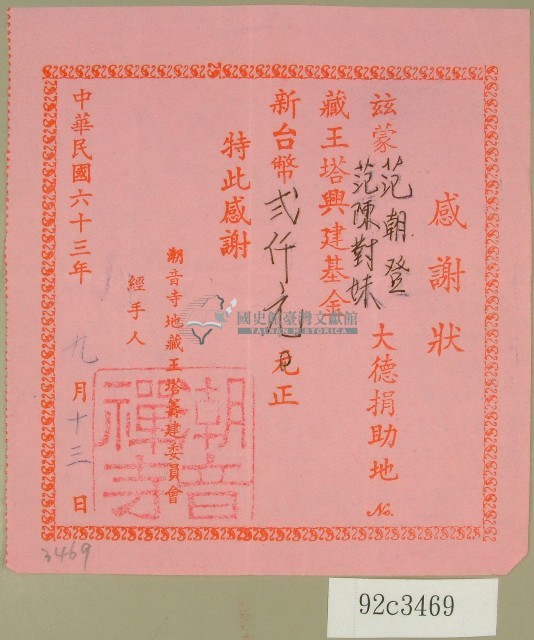 感謝狀
茲蒙范朝登 范陳對妹大德捐助地
No.
藏王塔興建基金
新台幣貳仟元元正
特此感謝
潮音寺地藏王塔籌建委員會
經手人
中華民國六十三年九月十三日
潮音禪寺
國史館臺灣文獻館
TAIWAN HISTORICA
3469
92c3469